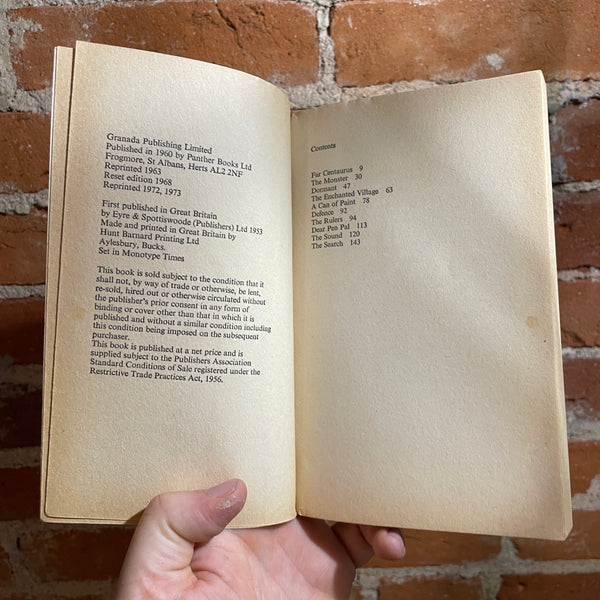 Granada Publishing Limited
Published in 1960 by Panther Books Ltd
Frogmore, St Albans, Herts AL2 2NF
Reprinted 1963
Reset edition 1968
Reprinted 1972, 1973
First published in Great Britain
by Eyre & Spottiswoode (Publishers) Ltd 1953
Made and printed in Great Britain by
Hunt Barnard Printing Ltd
Aylesbury, Bucks.
Set in Monotype Times
This book is sold subject to the condition that it
shall not, by way of trade or otherwise, be lent,
re-sold, hired out or otherwise circulated without
the publisher's prior consent in any form of
binding or cover other than that in which it is
published and without a similar condition including
this condition being imposed on the subsequent
purchaser.
This book is published at a net price and is
supplied subject to the Publishers Association
Standard Conditions of Sale registered under the
Restrictive Trade Practices Act, 1956.
Contents
Far Centaurus 9
The Monster 30
Dormant 47
The Enchanted Village 63
A Can of Paint 78
Defence 92
The Rulers 94
Dear Pen Pal 113
The Sound 120
The Search 143